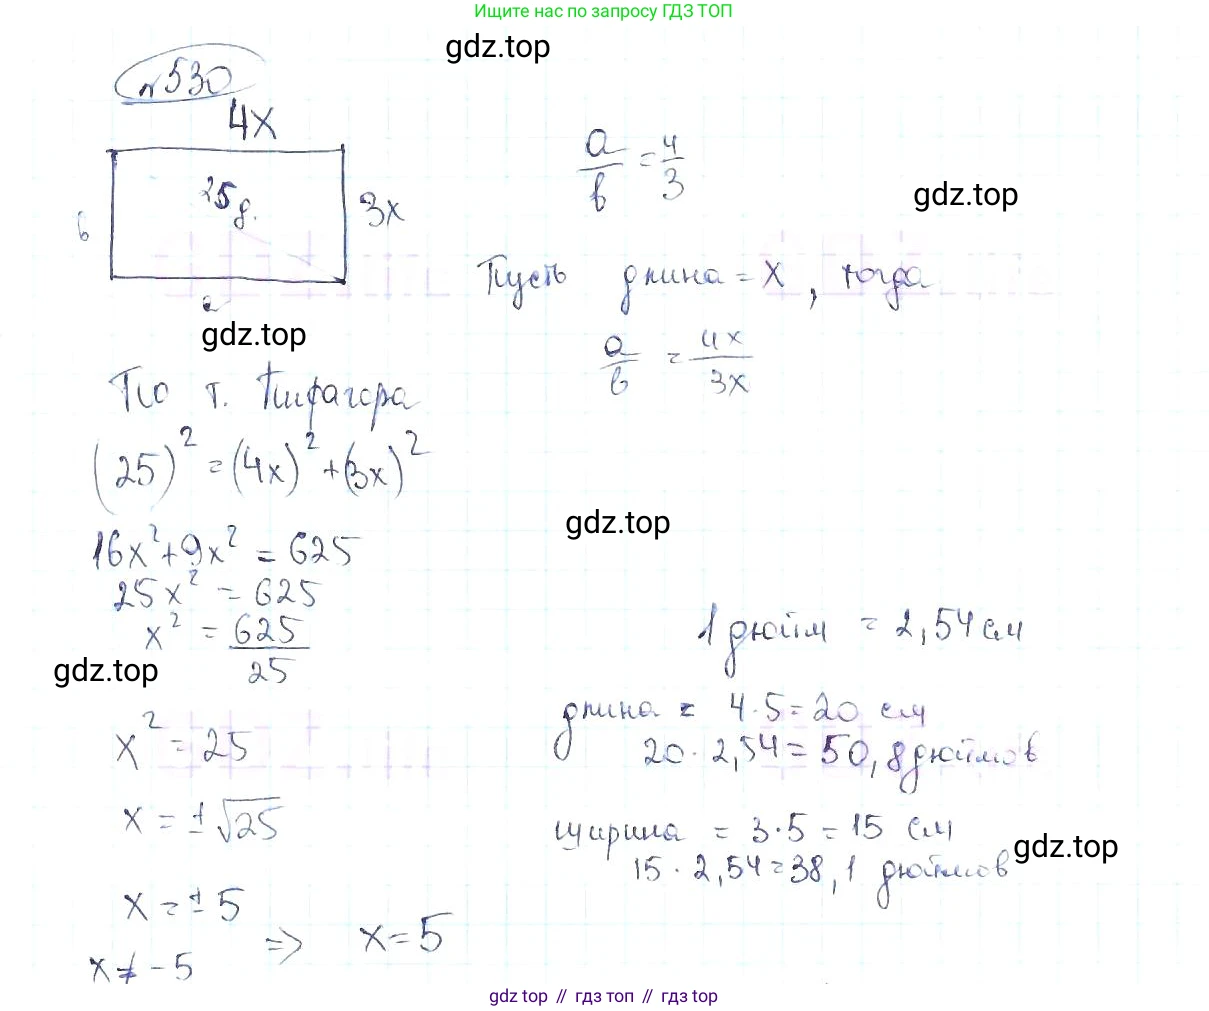 Ищите нас по запросу ГДЗ ТОП
gdz.top
№530
4x
a/b = 4/3
25 д.
3x
gdz.top
b
a
Пусть длина = x, тогда
gdz.top
a/b = 4x/3x
По т. Пифагора
(25)² = (4x)² + (3x)²
gdz.top
16x² + 9x² = 625
25x² = 625
x² = 625/25
1 дюйм = 2,54 см
gdz.top
длина = 4·5 = 20 см
x² = 25
20·2,54 = 50,8 дюймов
x = ±√25
ширина = 3·5 = 15 см
gdz.top
15·2,54 = 38,1 дюймов
x = ±5
x ≠ -5
=> x = 5
gdz top // гдз топ // gdz top